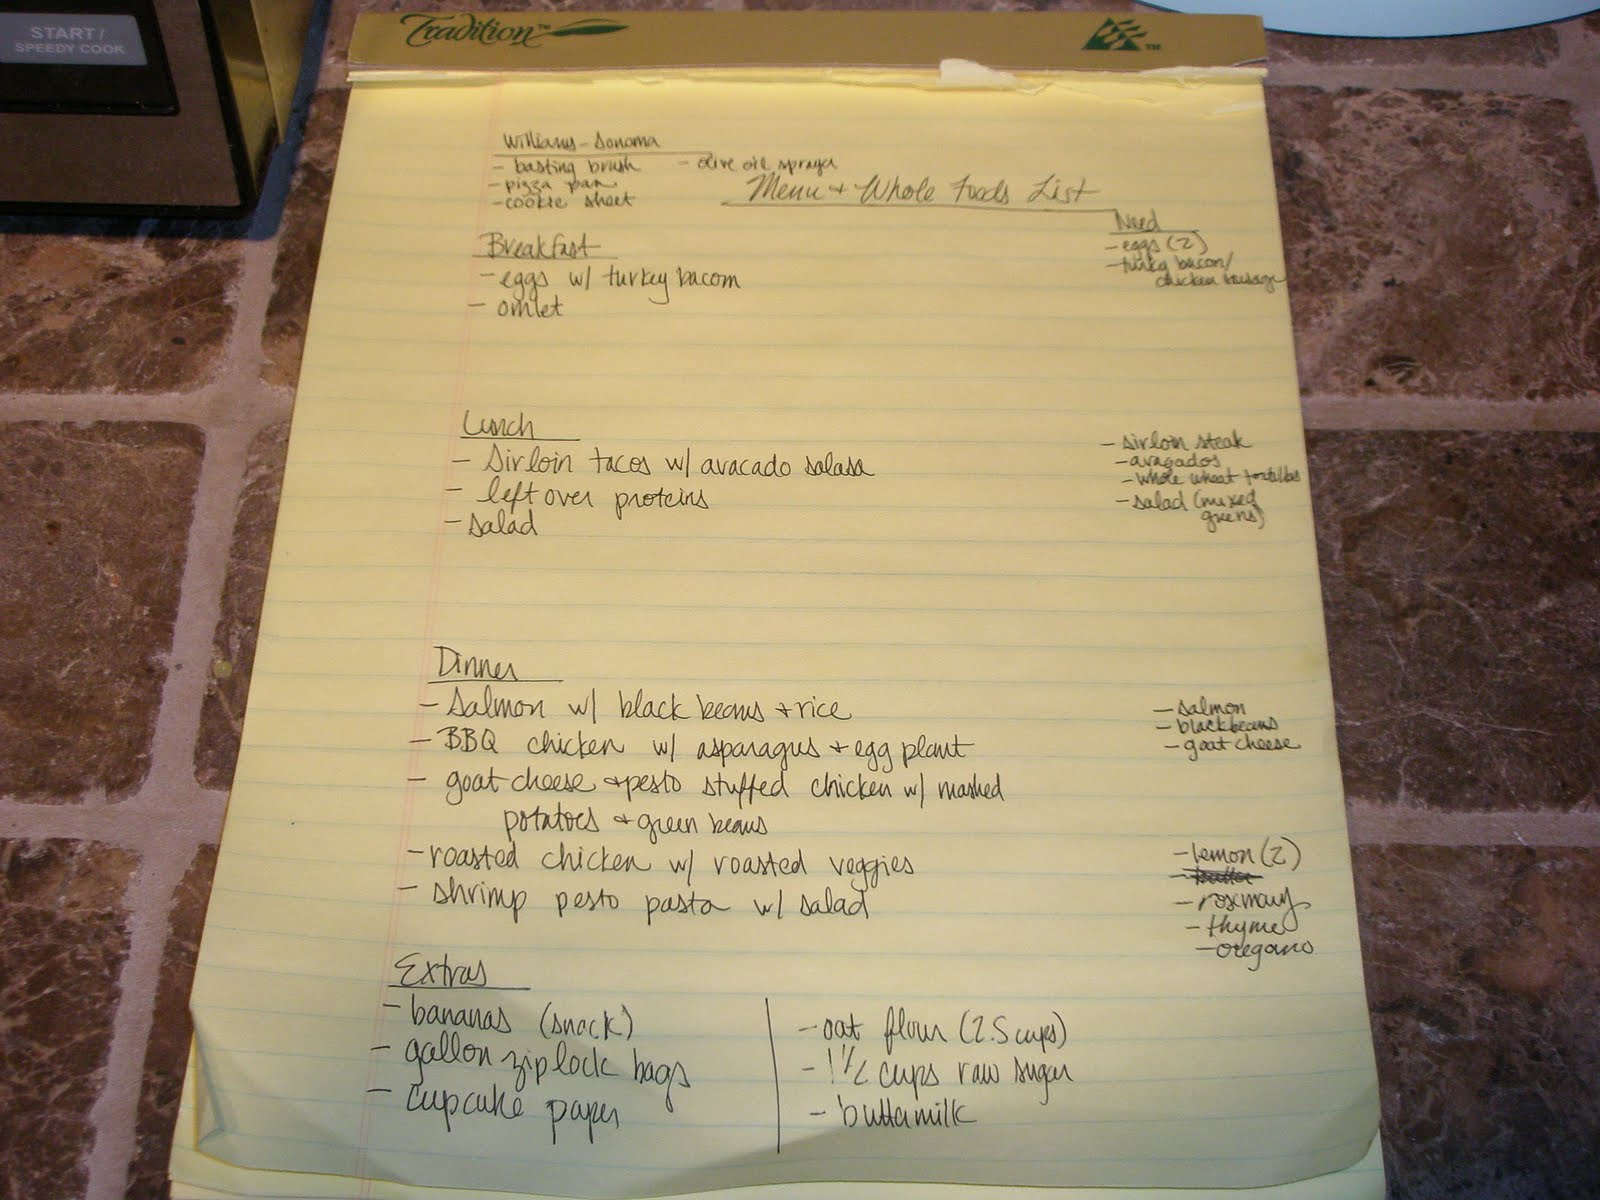 START /
SPEEDY COOK
Tradition™
TM
Williams-Sonoma
- basting brush - olive oil sprayer
- pizza pan
- cookie sheet
Menu + Whole Foods List
Need
- eggs (2)
- turky bacon/
chicken sausage
Breakfast
- eggs w/ turkey bacom
- omlet
Lunch
- Sirloin tacos w/ avacado salasa
- left over proteins
- salad
- sirloin steak
- avagados
- whole wheat tortillas
- salad (mixed
greens)
Dinner
- Salmon w/ black beans + rice
- BBQ chicken w/ asparagus + egg plant
- goat cheese + pesto stuffed chicken w/ mashed
potatoes + green beans
- roasted chicken w/ roasted veggies
- shrimp pesto pasta w/ salad
- salmon
- blackbeans
- goat cheese
- lemon (2)
- butter
- rosemary
- thyme
- oregano
Extras
- bananas (snack)
- gallon ziplock bags
- cupcake paper
- oat flour (2.5 cups)
- 1 1/2 cups raw sugar
- buttermilk